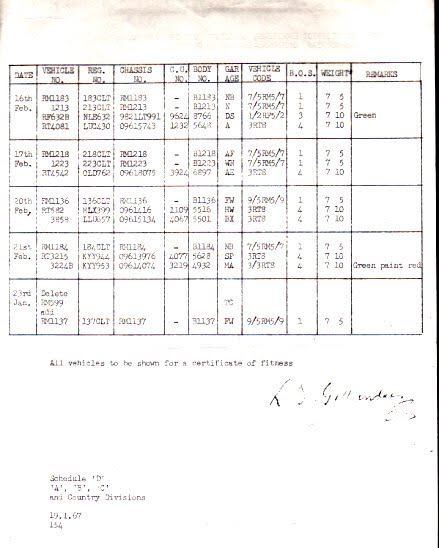 DATE VEHICLE NO. REG. NO. CHASSIS NO. C.U. NO. BODY NO. GAR AGE VEHICLE CODE H.O.S. WEIGHT REMARKS
16th RM1183 183CLT RM1183 - B1183 NB 7/5RM5/7 1 7 5
Feb. 1213 213CLT RM1213 - B1213 N 7/5RM5/7 1 7 5
RF632B NLE632 9821LT991 9624 8766 DS 1/2RF5/2 3 7 10 Green
RT4081 LUC430 09615743 1232 5648 A 3RT8 4 7 10
17th RM1218 218CLT RM1218 - B1218 AF 7/5RM5/7 1 7 5
Feb. 1223 223CLT RM1223 - B1223 WN 7/5RM5/7 1 7 5
RT4542 OLD762 09618075 3924 6897 AE 3RT8 4 7 10
20th RM1136 136CLT RM1136 - B1136 FW 9/5RM5/9 1 7 5
Feb. RT582 HLX399 0961416 1109 5516 HW 3RT8 4 7 10
3858 LLU657 09615134 4067 5501 BX 3RT8 4 7 10
21st RM1184 184CLT RM1184 - B1184 NB 7/5RM5/7 1 7 5
Feb. RT3215 KYY944 09613976 4077 5628 SP 3RT8 4 7 10
3224B KYY953 09614074 3219 4932 MA 3/3RT8 4 7 10 Green paint red
23rd Delete
Jan. RM599 TC
add
RM1137 137CLT RM1137 - B1137 FW 9/5RM5/9 1 7 5
All vehicles to be shown for a certificate of fitness
Schedule 'D'
'A', 'B', 'C'
and Country Divisions
19.1.67
154